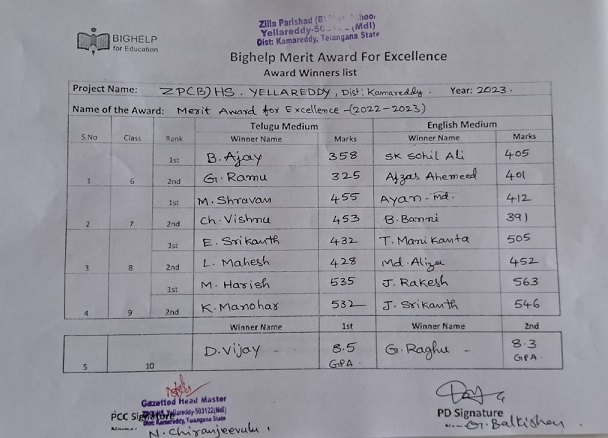 BIGHELP
for Education
Zilla Parishad
Yellareddy-50 (Mdl)
Dist: Kamareddy, Telangana State
Bighelp Merit Award For Excellence
Award Winners list
Project Name: ZPCB)HS. YELLAREDDY, Dist: Kamareddy. Year: 2023.
Name of the Award: Merit Award for Excellence -(2022-2023)
Telugu Medium English Medium
S.No Class Rank Winner Name Marks Winner Name Marks
1st B. Ajay 358 SK Sohil Ali 405
1 6 2nd G. Ramu 325 Afzas Ahemeed 401
1st M. Shravan 455 Ayan - Md. 412
2 7 2nd Ch. Vishnu 453 B. Banni 391
1st E. Srikanth 432 T. Manikanta 505
3 8 2nd L. Mahesh 428 Md. Alizer 452
1st M. Harish 535 J. Rakesh 563
4 9 2nd K. Manohar 532 J. Srikanth 546
Winner Name 1st Winner Name 2nd
5 10 D. Vijay 8.5 GPA. G. Raghu - 8.3 GPA.
Gazetted Head Master
PCC Signature Yellareddy-503122(Mdl)
Dist: Kamareddy, Telangana State
Name: N. Chiranjeevulu
PD Signature
G. Balkishan